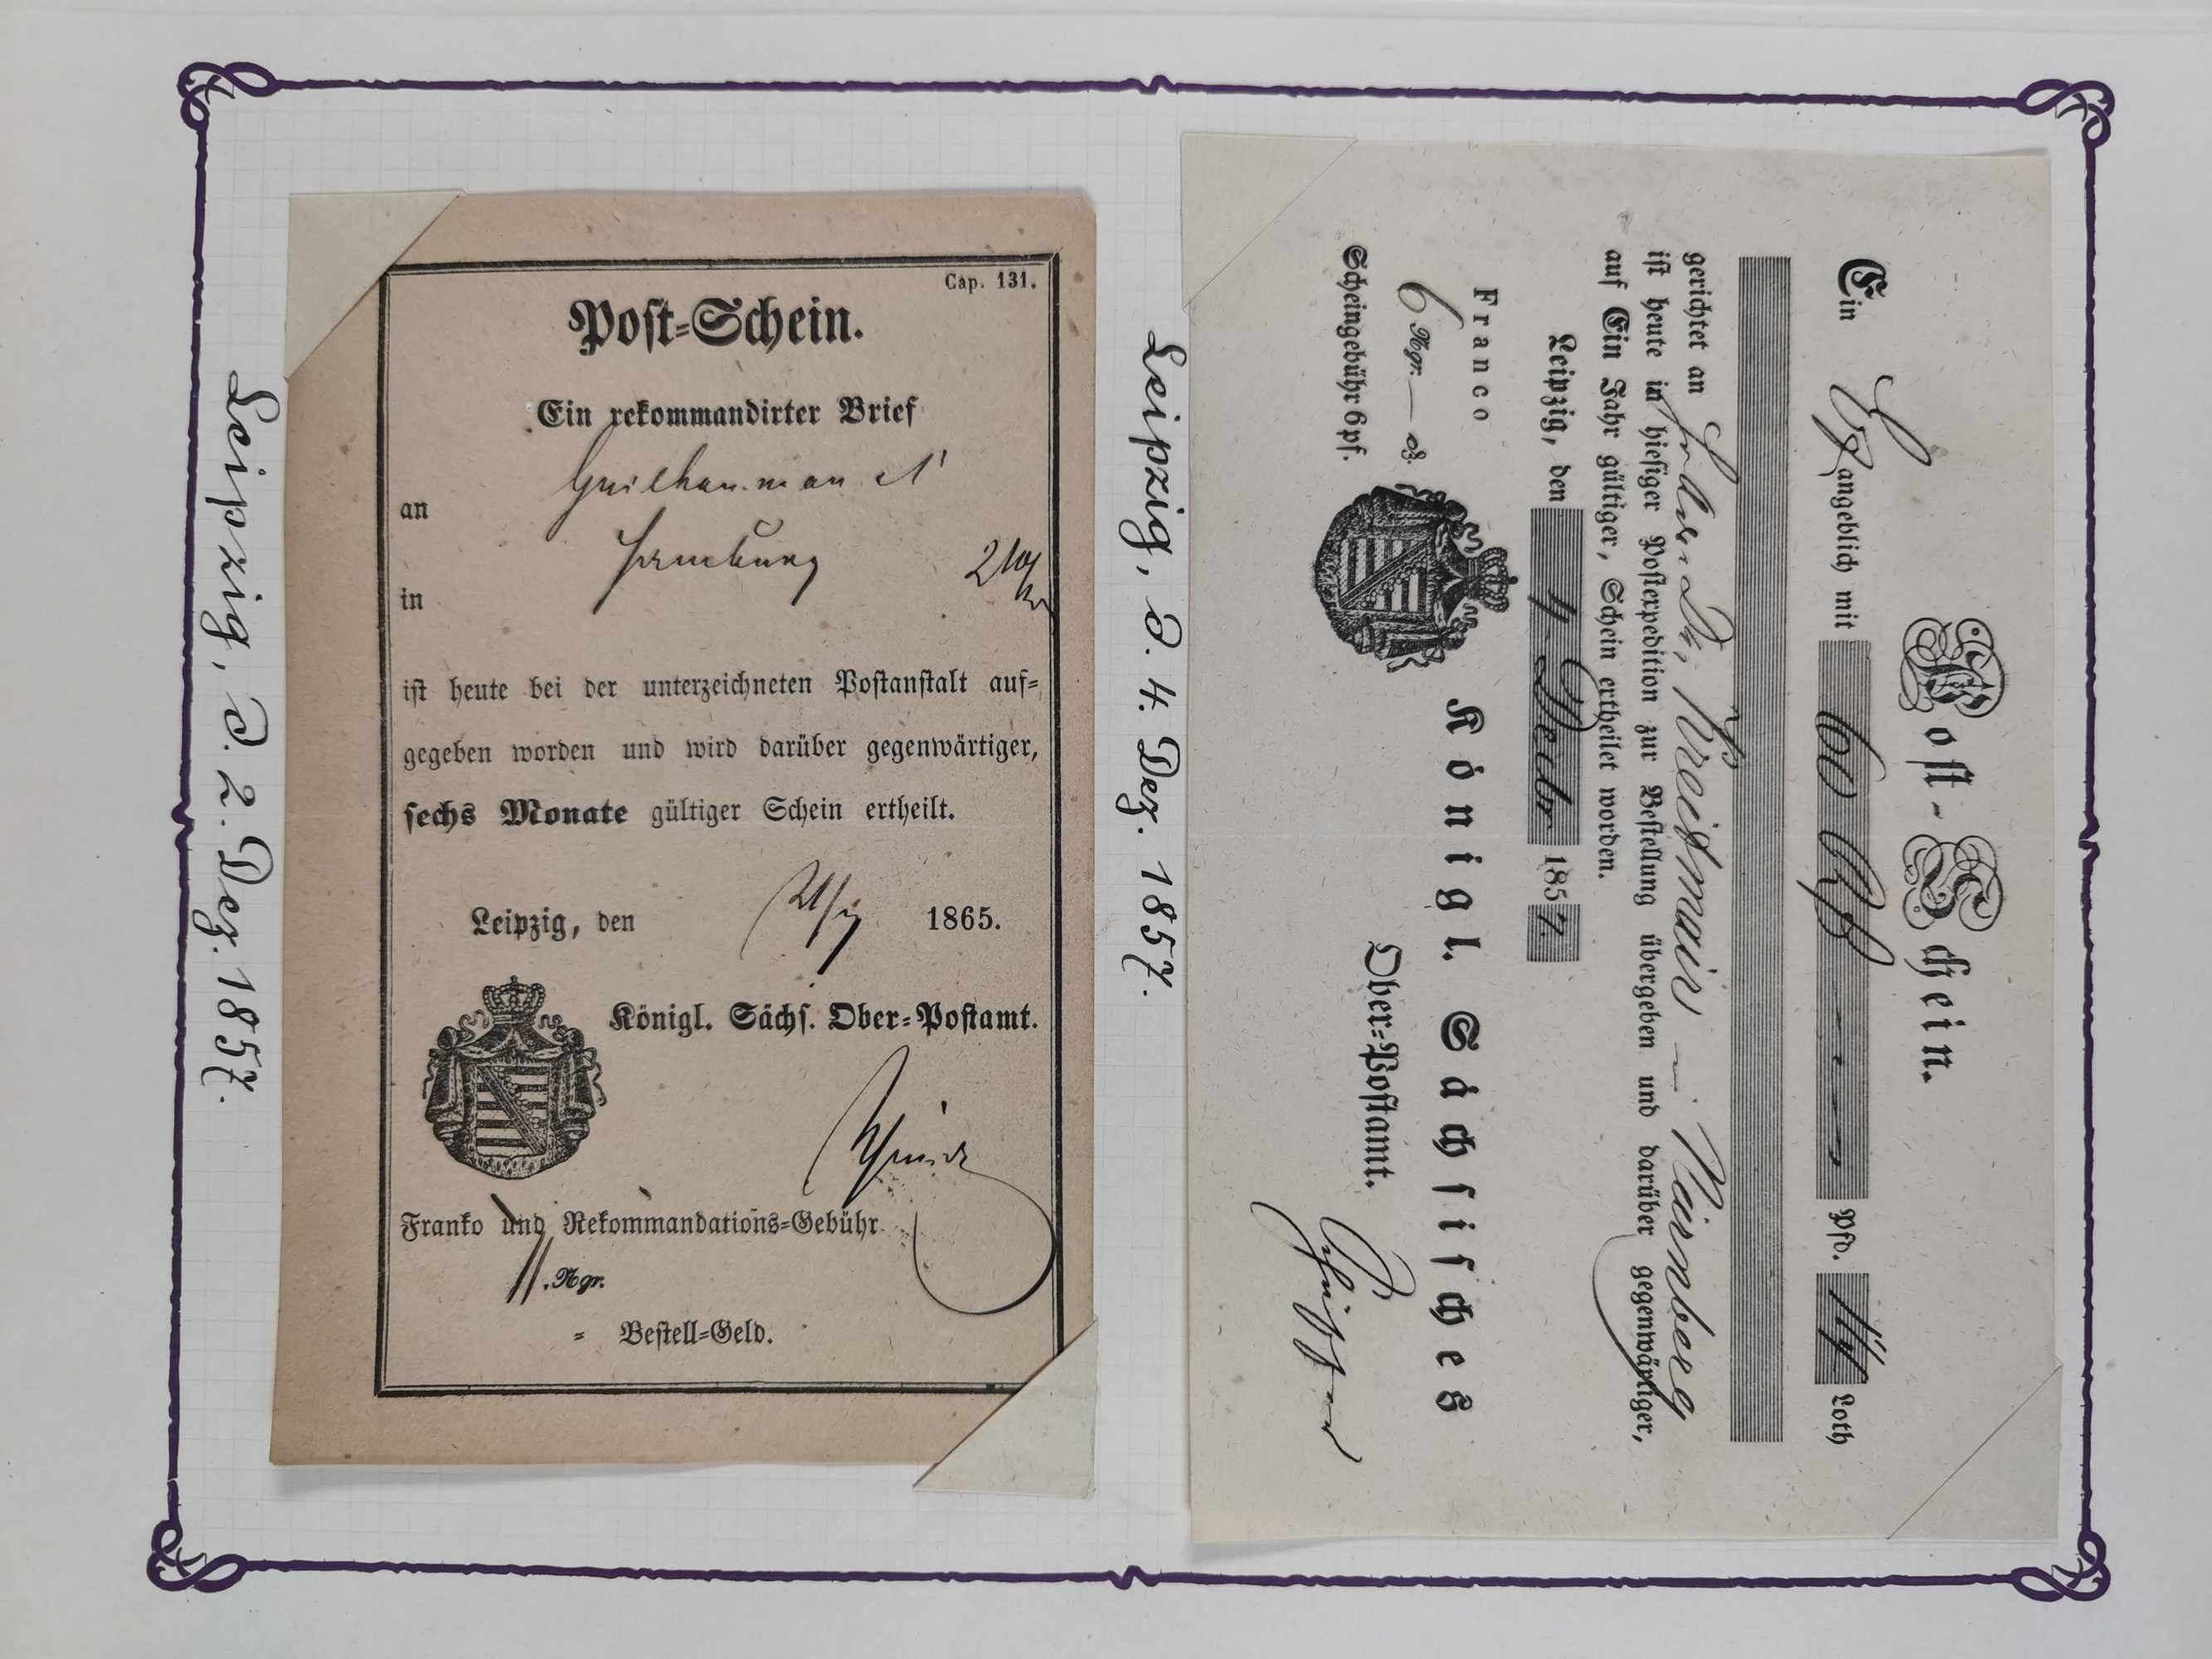 Cap. 131.
Post-Schein.
Ein rekommandirter Brief
an
in
ist heute bei der unterzeichneten Postanstalt auf-
gegeben worden und wird darüber gegenwärtiger,
sechs Monate gültiger Schein ertheilt.
Leipzig, den 21/7 1865.
Königl. Sächs. Ober-Postamt.
Franko und Rekommandations-Gebühr
Ngr.
= Bestell-Geld.
Leipzig, d. 2. Dez. 1857.
Post-Schein.
Ein angeblich mit 60 Pfd. Loth
gerichtet an Kreismair Nürnberg
ist heute in hiesiger Postexpedition zur Bestellung übergeben und darüber gegenwärtiger,
auf Ein Jahr gültiger, Schein ertheilet worden.
Leipzig, den 4 Decbr 1857.
Franco
6 Ngr. — ₰.
Scheingebühr 6 pf.
Königl. Sächsisches
Ober-Postamt.
Leipzig, d. 4. Dez. 1857.